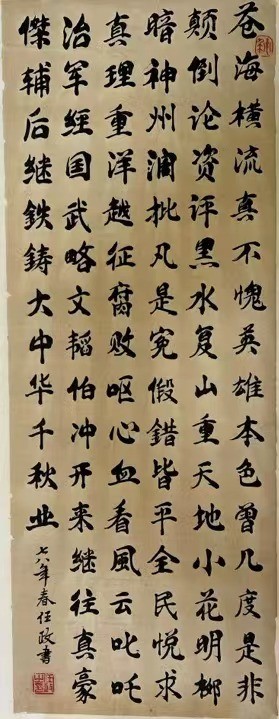 苍海横流真不愧英雄本色曾几度是非
颠倒论资评黑水复山重天地小花明柳
暗神州澜批凡是冤假錯皆平全民悦求
真理重洋越征腐败呕心血看風云叱吒
治军經国武略文韬伯冲开来继往真豪
傑辅后继鉄鑄大中华千秋业
七八年春任政書